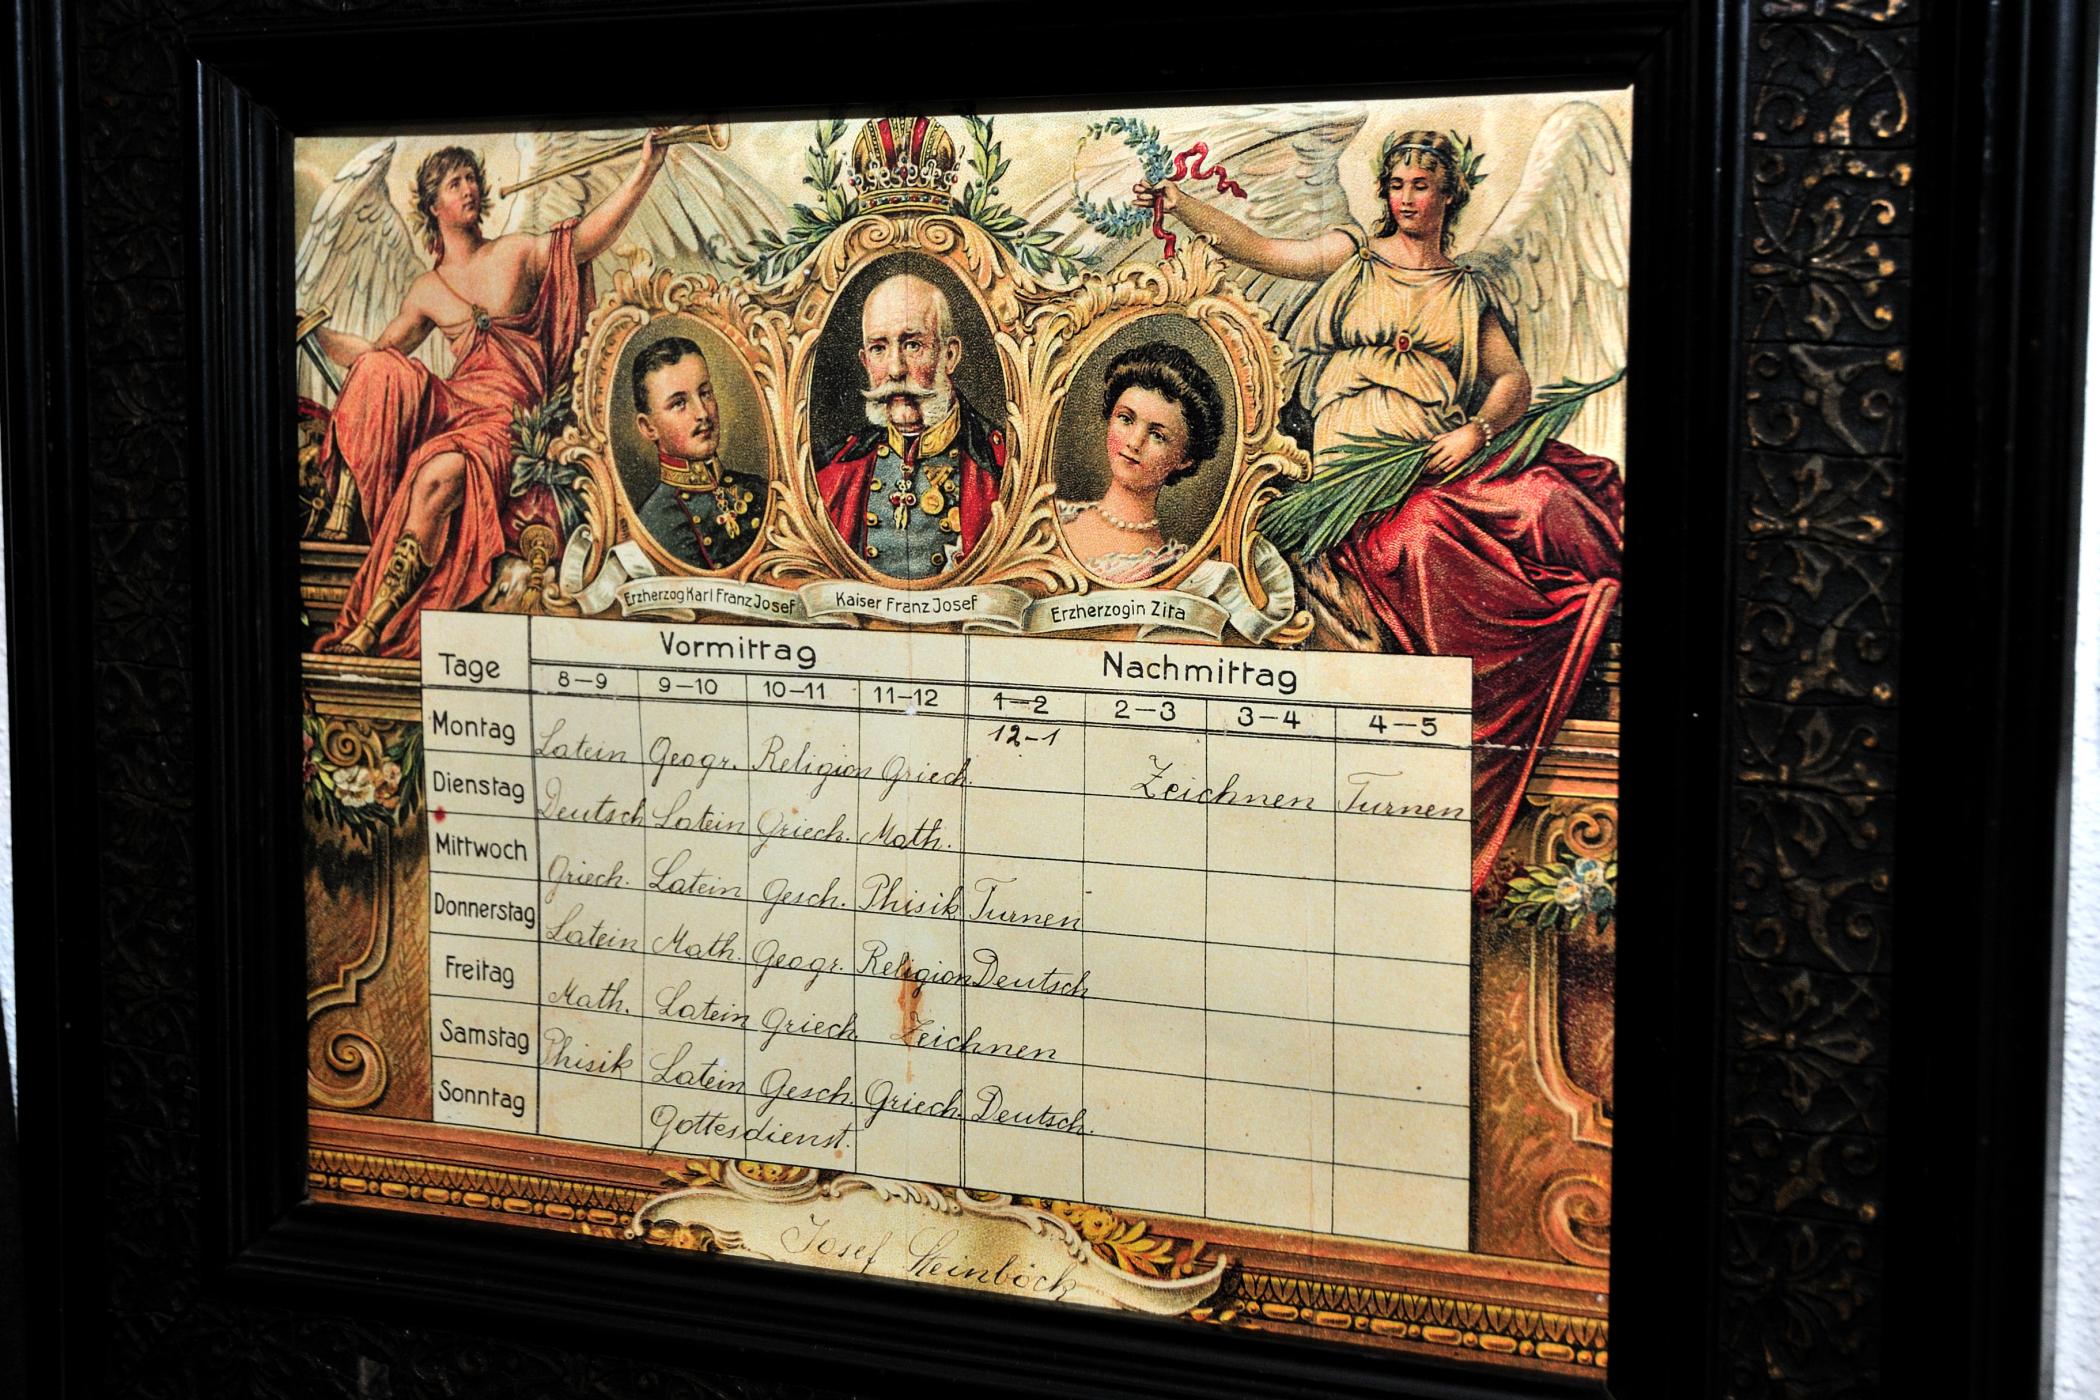 Erzherzog Karl Franz Josef Kaiser Franz Josef Erzherzogin Zita
Tage Vormittag Nachmittag
8—9 9—10 10—11 11—12 1—2 2—3 3—4 4—5
12-1
Montag Latein Geogr. Religion Griech. Zeichnen Turnen
Dienstag Deutsch Latein Griech. Math.
Mittwoch Griech. Latein Gesch. Phisik Turnen
Donnerstag Latein Math. Geogr. Religion Deutsch
Freitag Math. Latein Griech. Zeichnen
Samstag Phisik Latein Gesch. Griech. Deutsch.
Sonntag Gottesdienst.
Josef Steinböck